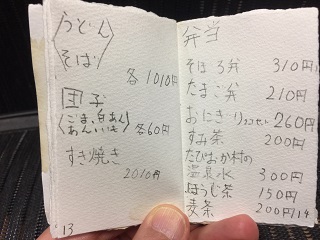 うどん
そば
各1010円
団子
ごま、白あん
あん、いも
各60円
すき焼き
2010円
13
弁当
そぼろ弁 310円
たまご弁 210円
おにぎり 260円
すみ茶 200円
たびおか村の
温泉水 300円
ほうじ茶 150円
麦茶 200円
14